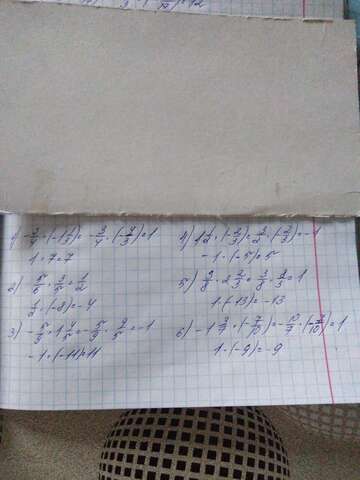 1) -3/4 · (-1 1/3) = -3/4 · (-4/3) = 1
1 · 7 = 7
2) 5/6 · 3/5 = 1/2
1/2 · (-8) = -4
3) -5/9 · 1 4/5 = -5/9 · 9/5 = -1
-1 · (-11) = 11
4) 1 1/2 · (-2/3) = 3/2 · (-2/3) = -1
-1 · (-5) = 5
5) 3/8 · 2 2/3 = 3/8 · 8/3 = 1
1 · (-13) = -13
6) -1 3/7 · (-7/10) = -10/7 · (-7/10) = 1
1 · (-9) = -9